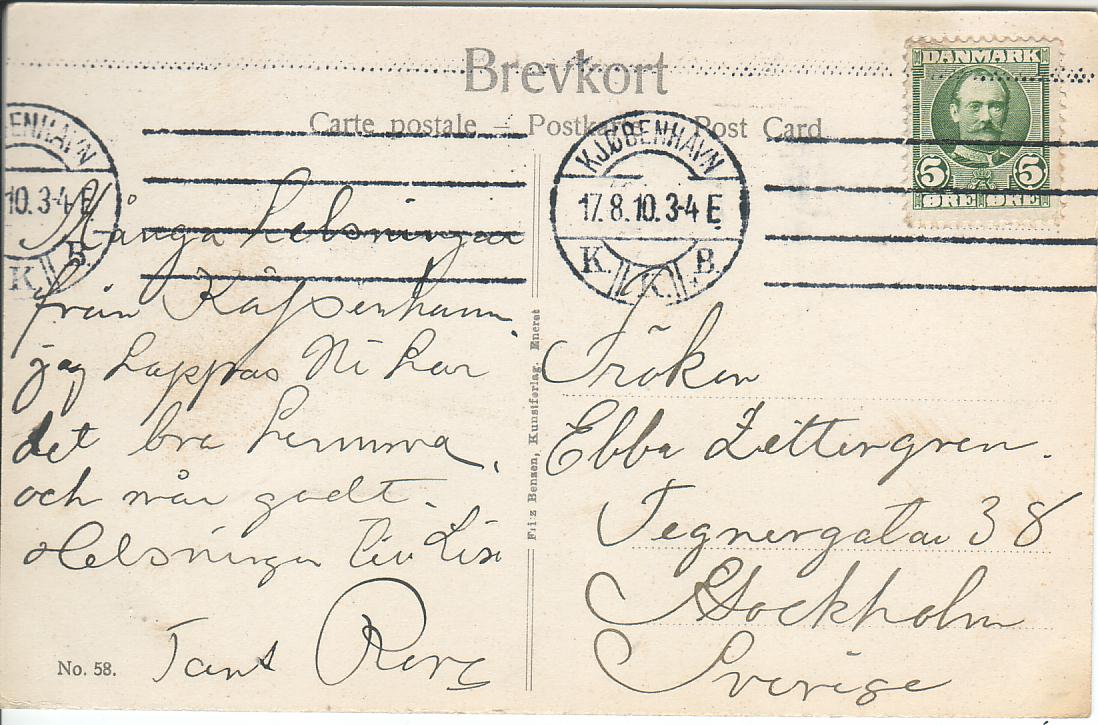 Brevkort
Carte postale – Postka Post Card
DANMARK
5 5
ØRE ØRE
KJØBENHAVN
17.8.10. 3-4 E
K. K. B.
ENHAVN
10. 3-4 E
K B.
Många helsningar
från Kjøpenhamn.
jag hoppas Ni har
det bra hemma,
och mår godt.
Helsningar
Tant
No. 58.
Fritz Benzen, Kunstforlag. Eneret
Fröken
Ebba Zettergren.
Tegnergatan 38
Stockholm
Sverige